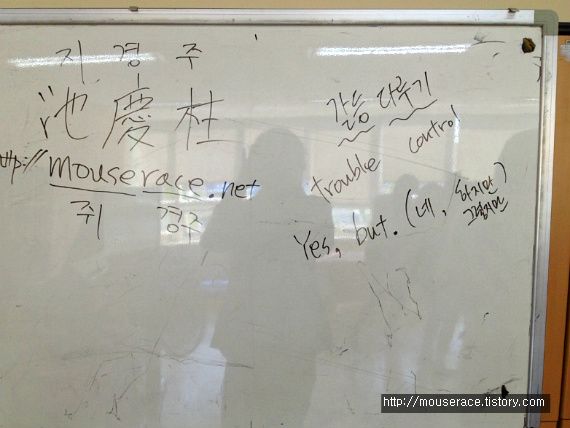 지 경 주
池 慶 柱
http://mouserace.net
쥐 경주
갈등 다루기
trouble control
Yes, but. (네, 하지만)
그렇지만
http://mouserace.tistory.com